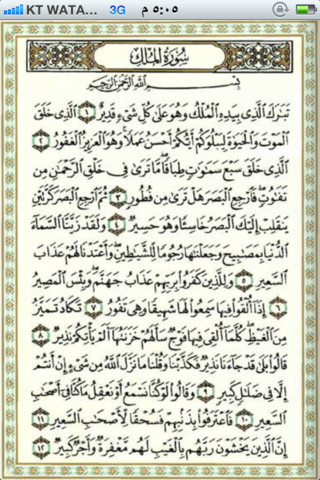 KT WATA... 3G ٥:٠٥ م
سُورَةُ الْمُلْكِ
بِسْمِ اللَّهِ الرَّحْمَٰنِ الرَّحِيمِ
تَبَارَكَ الَّذِي بِيَدِهِ الْمُلْكُ وَهُوَ عَلَىٰ كُلِّ شَيْءٍ قَدِيرٌ ١ الَّذِي خَلَقَ
الْمَوْتَ وَالْحَيَاةَ لِيَبْلُوَكُمْ أَيُّكُمْ أَحْسَنُ عَمَلًا وَهُوَ الْعَزِيزُ الْغَفُورُ ٢
الَّذِي خَلَقَ سَبْعَ سَمَاوَاتٍ طِبَاقًا مَّا تَرَىٰ فِي خَلْقِ الرَّحْمَٰنِ مِن
تَفَاوُتٍ فَارْجِعِ الْبَصَرَ هَلْ تَرَىٰ مِن فُطُورٍ ٣ ثُمَّ ارْجِعِ الْبَصَرَ كَرَّتَيْنِ
يَنقَلِبْ إِلَيْكَ الْبَصَرُ خَاسِئًا وَهُوَ حَسِيرٌ ٤ وَلَقَدْ زَيَّنَّا السَّمَاءَ
الدُّنْيَا بِمَصَابِيحَ وَجَعَلْنَاهَا رُجُومًا لِّلشَّيَاطِينِ وَأَعْتَدْنَا لَهُمْ عَذَابَ
السَّعِيرِ ٥ وَلِلَّذِينَ كَفَرُوا بِرَبِّهِمْ عَذَابُ جَهَنَّمَ وَبِئْسَ الْمَصِيرُ
٦ إِذَا أُلْقُوا فِيهَا سَمِعُوا لَهَا شَهِيقًا وَهِيَ تَفُورُ ٧ تَكَادُ تَمَيَّزُ
مِنَ الْغَيْظِ كُلَّمَا أُلْقِيَ فِيهَا فَوْجٌ سَأَلَهُمْ خَزَنَتُهَا أَلَمْ يَأْتِكُمْ نَذِيرٌ ٨
قَالُوا بَلَىٰ قَدْ جَاءَنَا نَذِيرٌ فَكَذَّبْنَا وَقُلْنَا مَا نَزَّلَ اللَّهُ مِن شَيْءٍ إِنْ أَنتُمْ
إِلَّا فِي ضَلَالٍ كَبِيرٍ ٩ وَقَالُوا لَوْ كُنَّا نَسْمَعُ أَوْ نَعْقِلُ مَا كُنَّا فِي أَصْحَابِ
السَّعِيرِ ١٠ فَاعْتَرَفُوا بِذَنبِهِمْ فَسُحْقًا لِّأَصْحَابِ السَّعِيرِ ١١
إِنَّ الَّذِينَ يَخْشَوْنَ رَبَّهُم بِالْغَيْبِ لَهُم مَّغْفِرَةٌ وَأَجْرٌ كَبِيرٌ ١٢